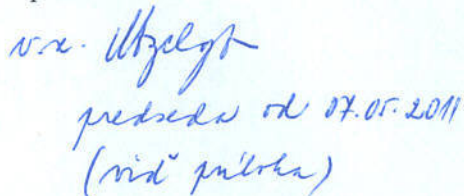 v.z.
predseda od 07.05.2011
(viď príloha)